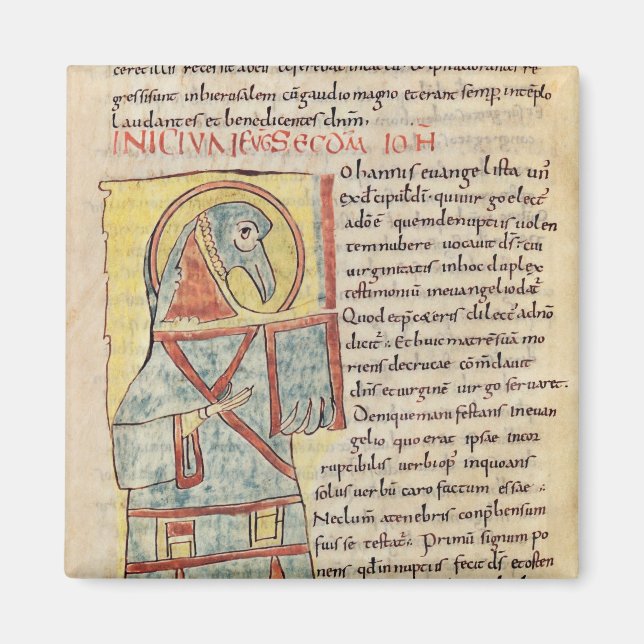 gressi sunt in hierusalem cū gaudio magno et erant semp, in templo
Laudantes et benedicentes dnm,
INICIUM EUG SECDM IOH
Iohannis euuangelista un'
ex dicipul di
quem de nuptiis uolen
tem nubere uocauit ds: cui
uirginitatis in hoc duplex
testimoniū in euangelio dat
Quod et p cæteris dilect' ad nō
dicit: Et huic matrē suā mo
riens de cruce cōmdauit
dns et uirginē uirgo seruaret.
Denique manifestans in euan
gelio quo erat ipsae incor
ruptibilis uerbi op' inquoans
solus uerbū caro factum essae:
Nec lum a tenebris conp'hensum
fuisse testat: Primū signum po
nens qd in nuptiis fecit ds et osten